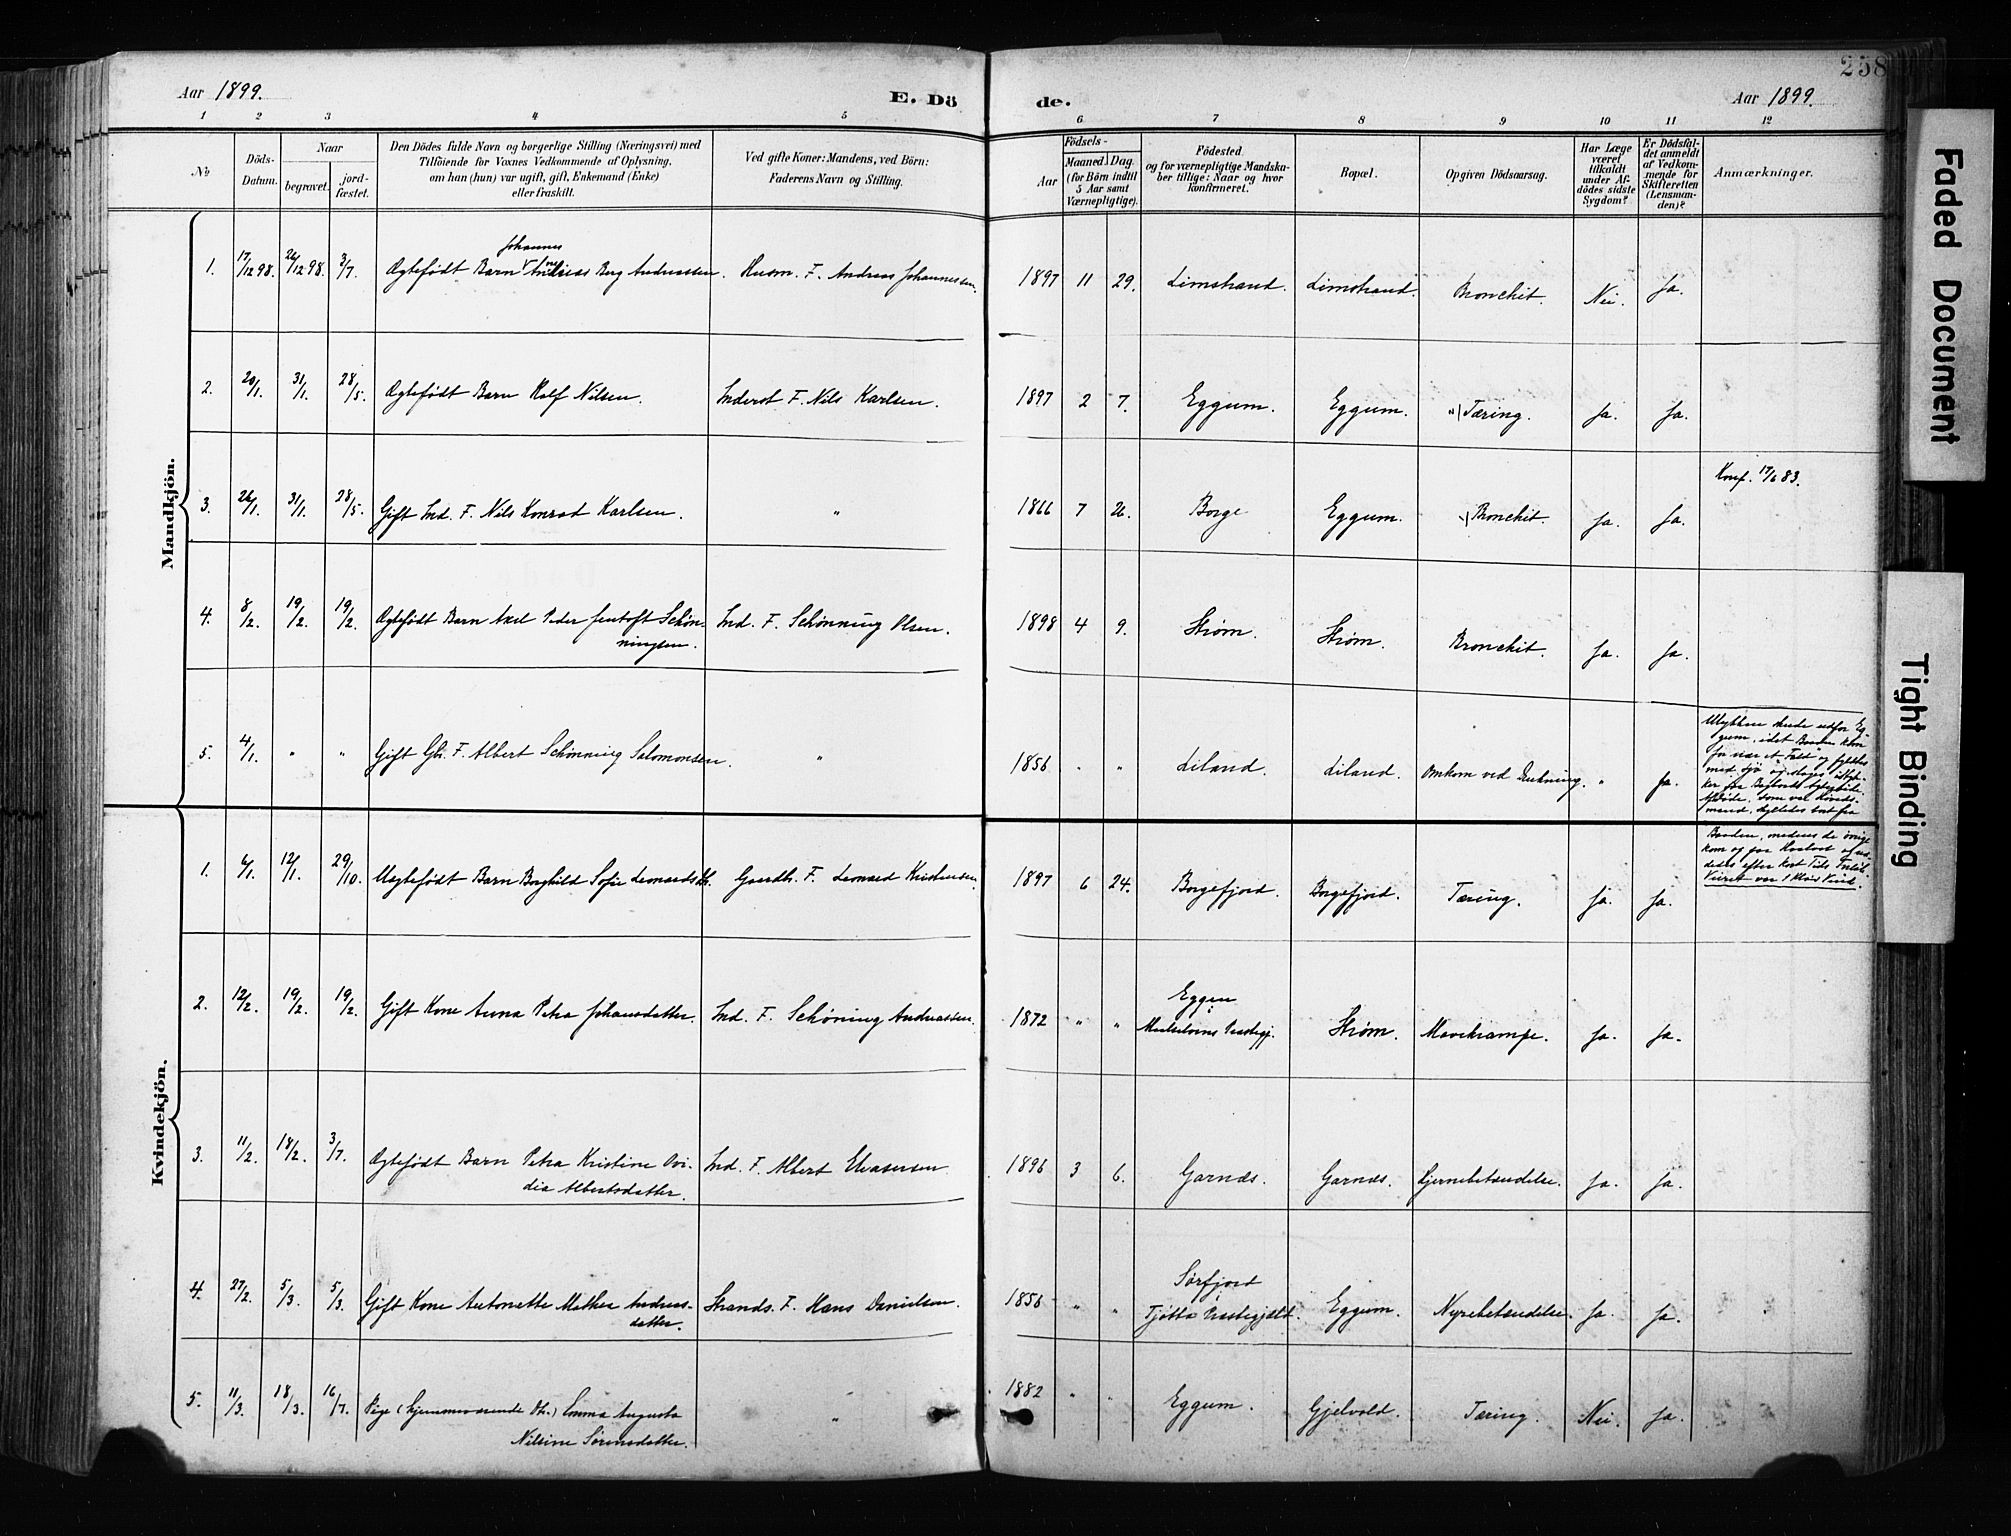 258
Aar 1899.
E. Dö
de.
Aar 1899.
1 2 3 4 5 6 7 8 9 10 11 12
№
Döds-
Datum.
Naar
begravet.
jord-
fæstet.
Den Dödes fulde Navn og borgerlige Stilling (Næringsvei) med
Tilföiende for Voxnes Vedkommende af Oplysning,
om han (hun) var ugift, gift, Enkemand (Enke)
eller fraskilt.
Ved gifte Koner: Mandens, ved Börn:
Faderens Navn og Stilling.
Födsels-
Aar
Maaned.
Dag.
(for Börn indtil
5 Aar samt
Værnepligtige).
Födested,
og for værnepligtige Mandska-
ber tillige: Naar og hvor
konfirmeret.
Bopæl.
Opgiven Dödsaarsag.
Har Læge
været
tilkaldt
under Af-
dödes sidste
Sygdom?
Er Dödsfal-
det anmeldt
af Vedkom-
mende for
Skifteretten
(Lensman-
den)?
Anmærkninger.
Mandkjön.
Johannes
1. 17/12 98. 26/12 98. 3/7. Ægtefødt Barn Berg Andreassen. Husm. F. Andreas Johannessen. 1897 11 29. Limstrand. Limstrand. Bronchit. Nei. Ja.
2. 20/1. 31/1. 28/5. Ægtefødt Barn Rolf Nilsen. Inderst F. Nils Karlsen. 1897 2 7. Eggum. Eggum. Tæring. Ja. Ja.
Konf. 17/6 83.
3. 26/1. 31/1. 28/5. Gift Ind. F. Nils Konrad Karlsen. " 1866 7 26. Borge Eggum. Bronchit. Ja. Ja.
4. 8/2. 19/2. 19/2. Ægtefødt Barn Axel Peder Jentoft Schøn-
ningsen. Ind. F. Schønning Olsen. 1898 4 9. Strøm. Strøm. Bronchit. Ja. Ja.
5. 4/1. " " Gift Gb. F. Albert Schønning Salomonsen. " 1856 " " Liland. Liland. Omkom ved Drukning. " Ja.
Ulykken skede udfor Eg-
gum, idet Baaden kom
for nær et "Fald" og fyldtes
med Sjø
som var Høveds-
mand, skylledes ud fra
Baaden, medens de øvrige
kom og paa Hvælvet og
efter kort Tids
Veiret var
Kvindekjön.
1. 6/1. 12/1. 29/10. Uægtefødt Barn Borghild Sofie Leonardsdtr. Gaardbr. F. Leonard Kristensen. 1897 6 24. Borgefjord. Borgefjord. Tæring. Ja. Ja.
2. 12/2. 19/2. 19/2. Gift Kone Anna Petra Johansdatter. Ind. F. Schöning Andreassen. 1872 " " Eggen
Præstegj. Strøm. Mavekrampe. Ja. Ja.
3. 11/2. 18/2. 3/7. Ægtefødt Barn Petra Kristine Ovi-
dia Albertsdatter. Ind. F. Albert Eliasersen 1896 3 6. Garnæs. Garnæs. Hjernebetændelse. Ja. Ja.
4. 27/2. 5/3. 5/3. Gift Kone Antonette Mathea Andreas-
datter. Strands. F. Hans Danielsen. 1856 " " Sørfjord
Tjøtta Præstegjeld. Eggum. Nyrebetændelse. Ja. Ja.
5. 11/3. 18/3. 16/7. Pige (hjemmeværende Dtr.) Emma Augusta
Nilsine Sørensdatter. " 1882 " " Eggum. Gjelvold. Tæring. Nei. Ja.
Faded Document
Tight Binding